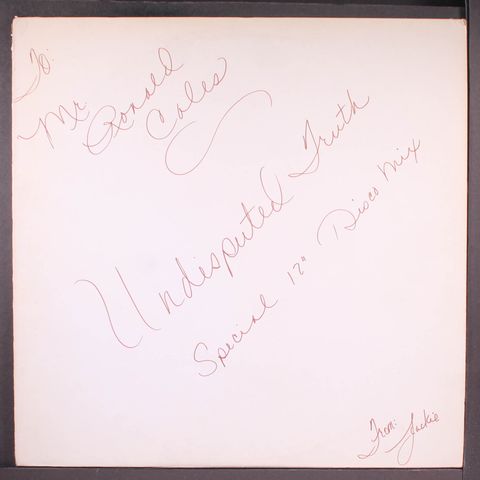 To:
Mr. Ronald
Coles
Undisputed Truth
Special 12" Disco Mix
From: Jackie